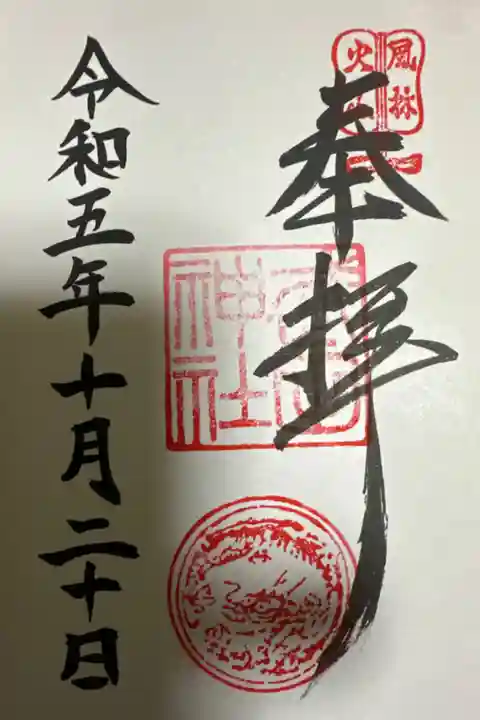 風林
火山
奉拝
神社
令和五年十月二十日